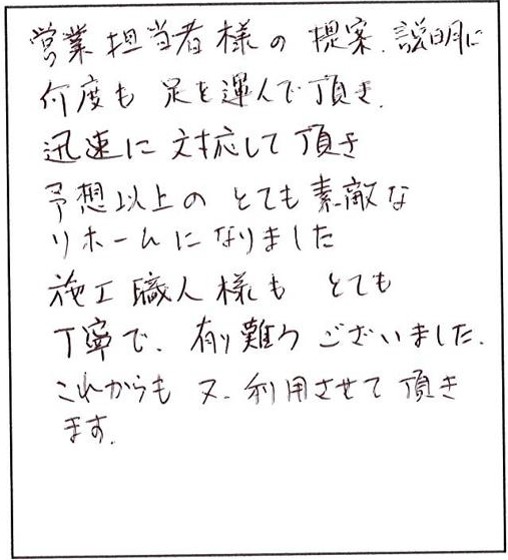 営業担当者様の提案、説明に
何度も足を運んで頂き、
迅速に対応して頂き
予想以上のとても素敵な
リホームになりました
施工職人様もとても
丁寧で、有難うございました。
これからも又、利用させて頂き
ます。